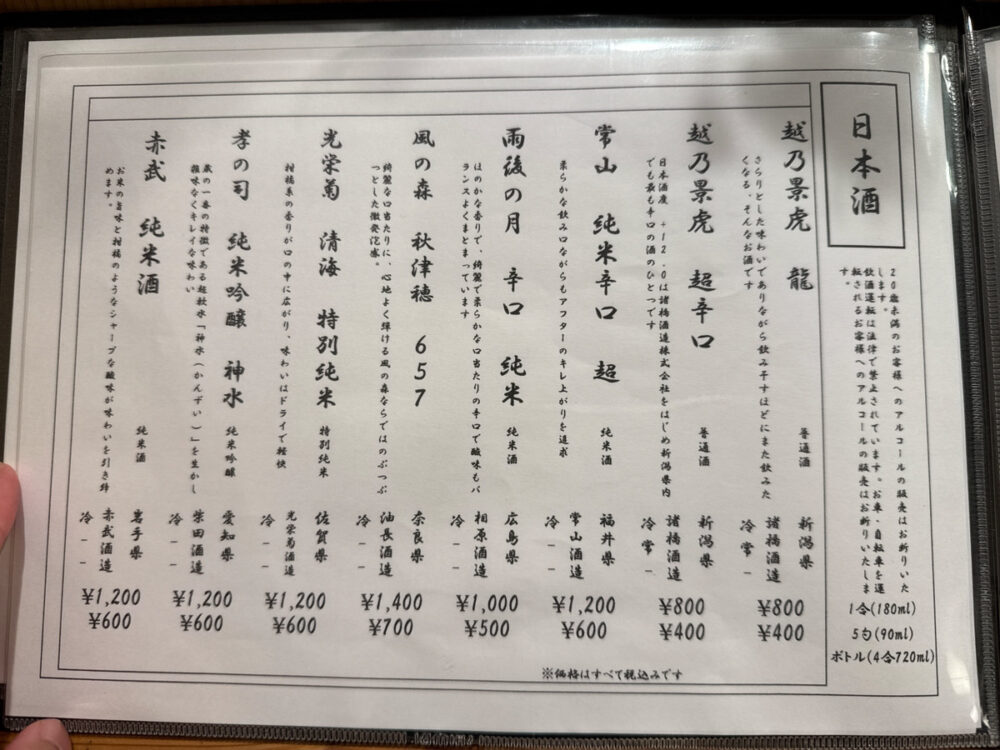 日本酒
20歳未満のお客様へのアルコールの販売はお断りいた
します。
飲酒運転は法律で禁止されています。お車・自転車を運
転されるお客様へのアルコールの販売はお断りいたしま
す。
1合(180ml)
5勺(90ml)
ボトル(4合720ml)
越乃景虎 龍
さらりとした味わいでありながら飲み干すほどにまた飲みた
くなる、そんなお酒です
普通酒
新潟県
諸橋酒造
冷 常 -
¥800
¥400
越乃景虎 超辛口
日本酒度 +12.0は諸橋酒造株式会社をはじめ新潟県内
でも最も辛口の酒のひとつです
普通酒
新潟県
諸橋酒造
冷 常 -
¥800
¥400
常山 純米辛口 超
柔らかな飲み口ながらもアフターのキレ上がりを追求
純米酒
福井県
常山酒造
冷 - -
¥1,200
¥600
雨後の月 辛口 純米
ほのかな香りで、綺麗で柔らかな口当たりの辛口で酸味もバ
ランスよくまとまっています
純米酒
広島県
相原酒造
冷 - -
¥1,000
¥500
風の森 秋津穂 657
綺麗な口当たりに、心地よく弾ける風の森ならではのぷつぷ
つとした微発泡感。
奈良県
油長酒造
冷 - -
¥1,400
¥700
光栄菊 清海 特別純米
柑橘系の香りが口の中に広がり、味わいはドライで軽快
特別純米
佐賀県
光栄菊酒造
冷 - -
¥1,200
¥600
孝の司 純米吟醸 神水
蔵の一番の特徴である超軟水「神水(かんずい)」を生かし
雑味なくキレイな味わい
純米吟醸
愛知県
柴田酒造
冷 - -
¥1,200
¥600
赤武 純米酒
お米の旨味と柑橘のようなシャープな酸味が味わいを引き締
めます。
純米酒
岩手県
赤武酒造
冷 - -
¥1,200
¥600
※価格はすべて税込みです